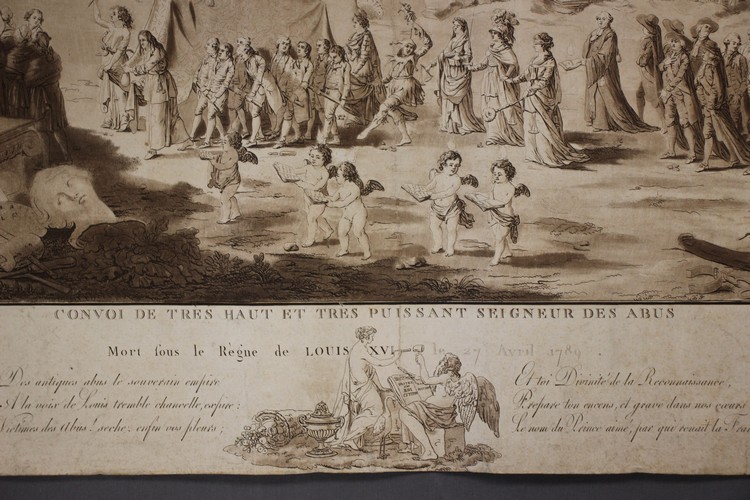 CONVOI DE TRES HAUT ET TRES PUISSANT SEIGNEUR DES ABUS
Mort sous le Règne de LOUIS XVI le 27 Avril 1789.
Des antiques abus le souverain empire
A la voix de Louis tremble chancelle, expire:
Victimes des Abus! sechez enfin vos pleurs;
Et toi Divinité de la Reconnaissance,
Prepare ton encens, et grave dans nos cœurs
le nom du Prince aimé, par qui renait la